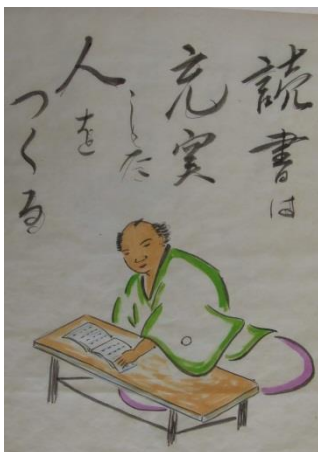 読書は
充実
した
人を
つくる